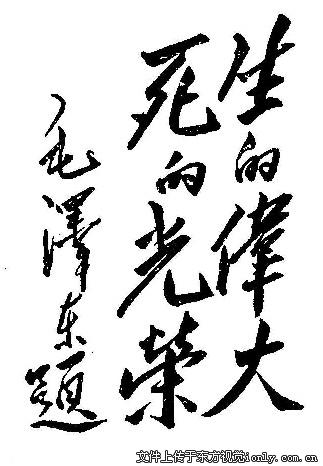 生的偉大
死的光榮
毛澤东題
文件上传于东方视觉ionly.com.cn